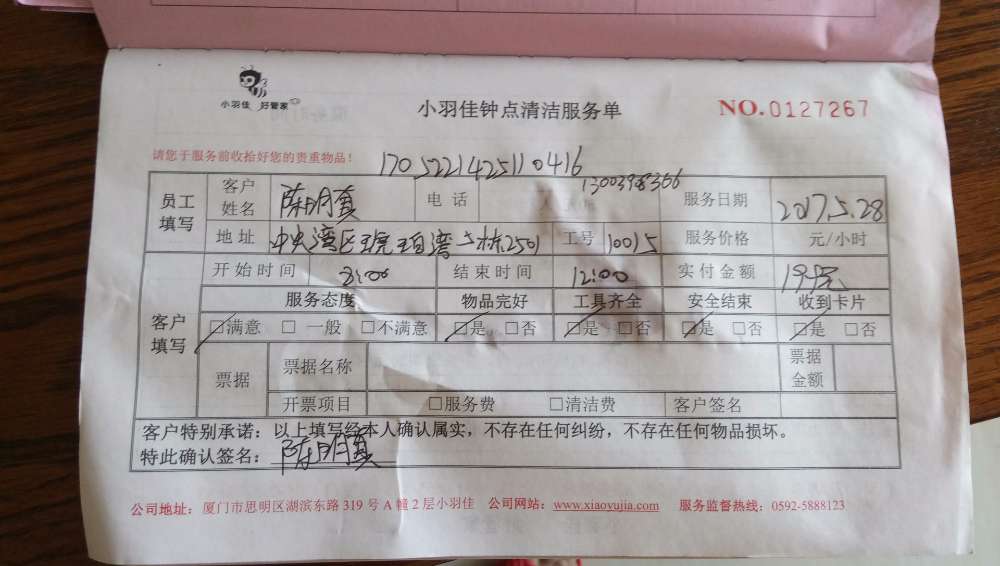 小羽佳 好管家
小羽佳钟点清洁服务单
NO.0127267
请您于服务前收拾好您的贵重物品!
1705221425110416
员工填写 客户姓名 陈明 电话 服务日期 2017.5.28
地址 中央湾区琥珀湾5栋2501 工号 10015 服务价格 元/小时
客户填写 开始时间 8:00 结束时间 12:00 实付金额
服务态度 物品完好 工具齐全 安全结束 收到卡片
□满意 □一般 □不满意 □是 □否 □是 □否 □是 □否 □是 □否
票据 票据名称 票据金额
开票项目 □服务费 □清洁费 客户签名
客户特别承诺:以上填写经本人确认属实,不存在任何纠纷,不存在任何物品损坏。
特此确认签名: 陈明
公司地址:厦门市思明区湖滨东路319号A幢2层小羽佳 公司网站:www.xiaoyujia.com 服务监督热线:0592-5888123